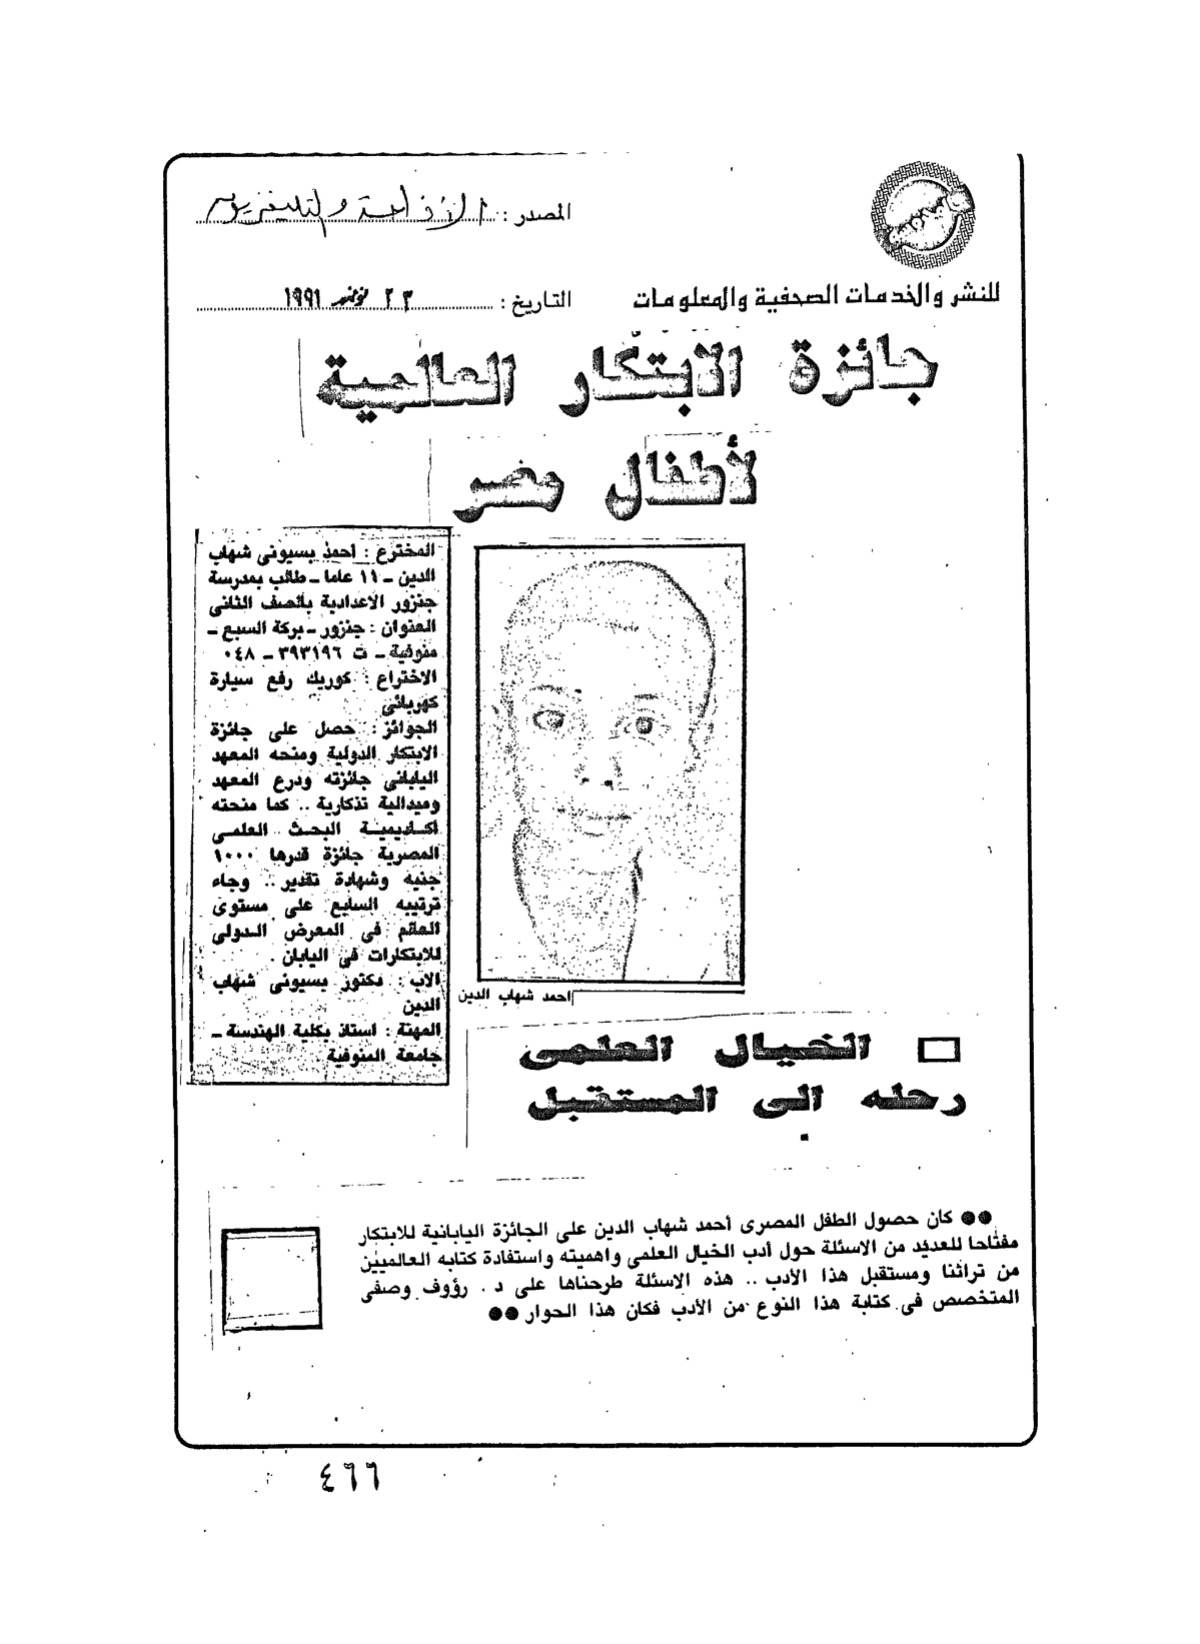 المصدر : الاذاعة والتليفزيون
للنشر والخدمات الصحفية والمعلومات
التاريخ : ٢٣ نوفمبر ١٩٩١
جائزة الابتكار العالمية
لأطفال مصر
المخترع : احمد بسيونى شهاب
الدين ــ ١١ عاما ــ طالب بمدرسة
جنزور الاعدادية بالصف الثانى
العنوان : جنزور ــ بركة السبع ــ
منوفية ــ ت ٣٩٣١٩٦ ــ ٠٤٨
الاختراع : كوريك رفع سيارة
كهربائى
الجوائز : حصل على جائزة
الابتكار الدولية ومنحه المعهد
اليابانى جائزته ودرع المعهد
وميدالية تذكارية .. كما منحته
أكاديمية البحث العلمى
المصرية جائزة قدرها ١٠٠٠
جنيه وشهادة تقدير .. وجاء
ترتيبه السابع على مستوى
العالم فى المعرض الدولى
للابتكارات فى اليابان .
الاب : دكتور بسيونى شهاب
الدين
المهنة : استاذ بكلية الهندسة ــ
جامعة المنوفية
احمد شهاب الدين
الخيال العلمى
رحله الى المستقبل
●● كان حصول الطفل المصرى أحمد شهاب الدين على الجائزة اليابانية للابتكار
مفتاحا للعديد من الاسئلة حول أدب الخيال العلمى واهميته واستفادة كتابه العالميين
من تراثنا ومستقبل هذا الأدب .. هذه الاسئلة طرحناها على د . رؤوف وصفى
المتخصص فى كتابة هذا النوع من الأدب فكان هذا الحوار ●●
٤٦٦